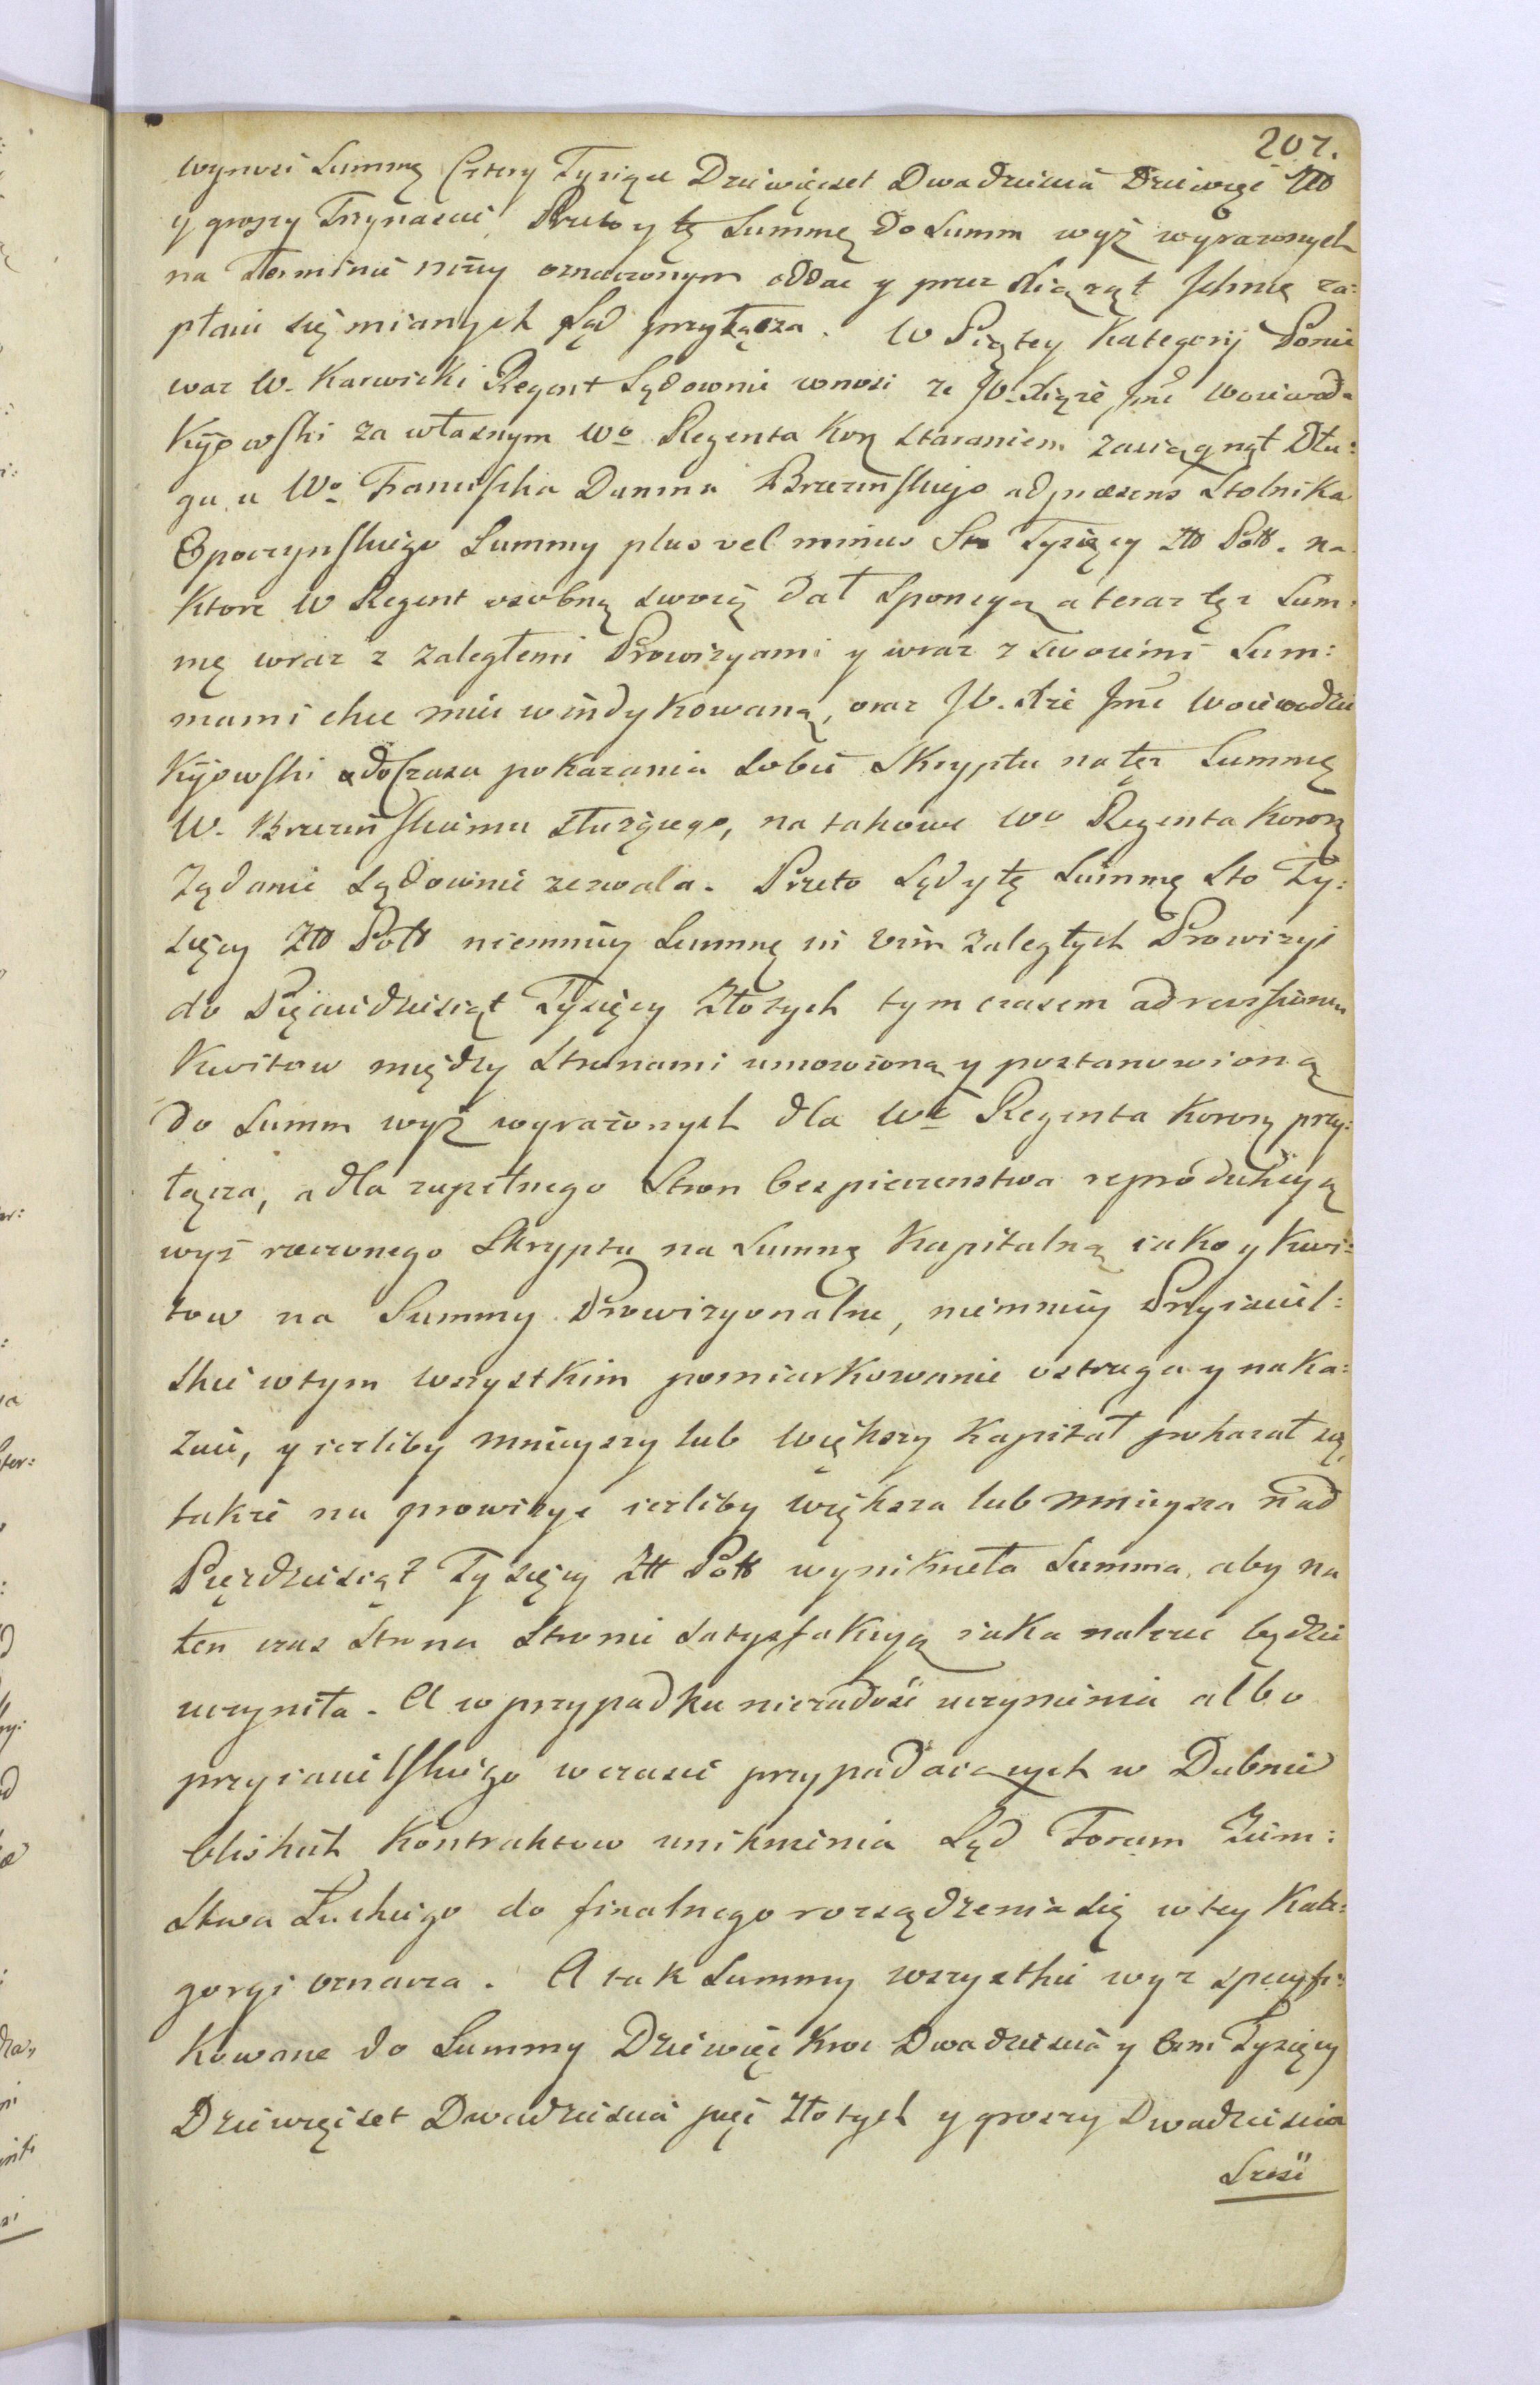 207.
wynosi Summę Cztery Tysiące Dziewięcset Dwadziescia Dziewięc Złł
y groszy Trzynascie, Przeto y tę Summę do Summ wyż wyrazonych
na Terminie niżey oznaczonym oddac y przez Xiążąt Jchmę za:
płacic się mianych Sąd przyłącza. W Piątey Kategoryi Ponie
waz W. Karwicki Regent Sądownie wnosi ze JW. Xiąże Jmć Woiewoda
Kijowski za własnym Wo Regenta Kor staraniem zaciągnął Dłu:
gu u Wo Franciszka Dunina Brzezinskiego ad præsens Stolnika
Opoczynskiego Summy plus vel minus Sto Tysięcy Złł Poll. na
Ktore W Regent osobną swoię dał Sponcyą a teraz tęz Sum:
mę wraz z zaległemi Prowizyami y wraz z swoiemi Sum:
mami chce miec windykowaną, oraz JW. Xże Jmć Woiewodzic
Kijowski do Czasu pokazania Sobie Skryptu na tęz Summę
W. Brzezinskiemu służącego, na takowe Wo Regenta Koron
Ządanie Sądownie zezwala. Przeto Sąd y tę Summę Sto Ty:
sięcy Złł Poll niemniey Summę in vim zaległych Prowizyi
do Pięciudziesiąt Tysięcy Złotych tym czasem ad revisionem
Kwitow między Stronami umowioną y postanowioną
do Summ wyż wyrażonych dla Wo Regenta Koron przy:
łącza, a dla zupełnego Stron bezpieczenstwa reprodukcyą
wyż rzeczonego Skryptu na Summę Kapitalną iako y Kwi:
tow na Summy Prowizyonalne, niemniey Przyiaciel:
skie w tym wszystkim pomiarkowanie ostrzega y naka:
zuie, y iezliby mnieyszy lub większy Kapitał pokazał się,
także na prowizye iezliby większa lub mnieysza nad
Pięcdziesiąt Tysięcy Złł Poll wynikneła Summa, aby na
ten czas Strona Stronie satysfakcyą iaka nalezec będzie
uczyniła. A w przypadku niezadosć uczynienia albo
przyiacielskiego w czasie przypadaiących w Dubnie
bliskich Kontraktow uniknienia Sąd Forum Ziem:
stwa Łuckiego do finalnego rozsądzenia się w tey Kate:
goryi oznacza. A tak Summy wszystkie wyz specyfi:
kowane do Summy Dziewięc Kroc Dwadziescia y Osm Tysięcy
Dziewięcset Dwadziescia pięc Złotych y groszy Dwadziescia
Szesć